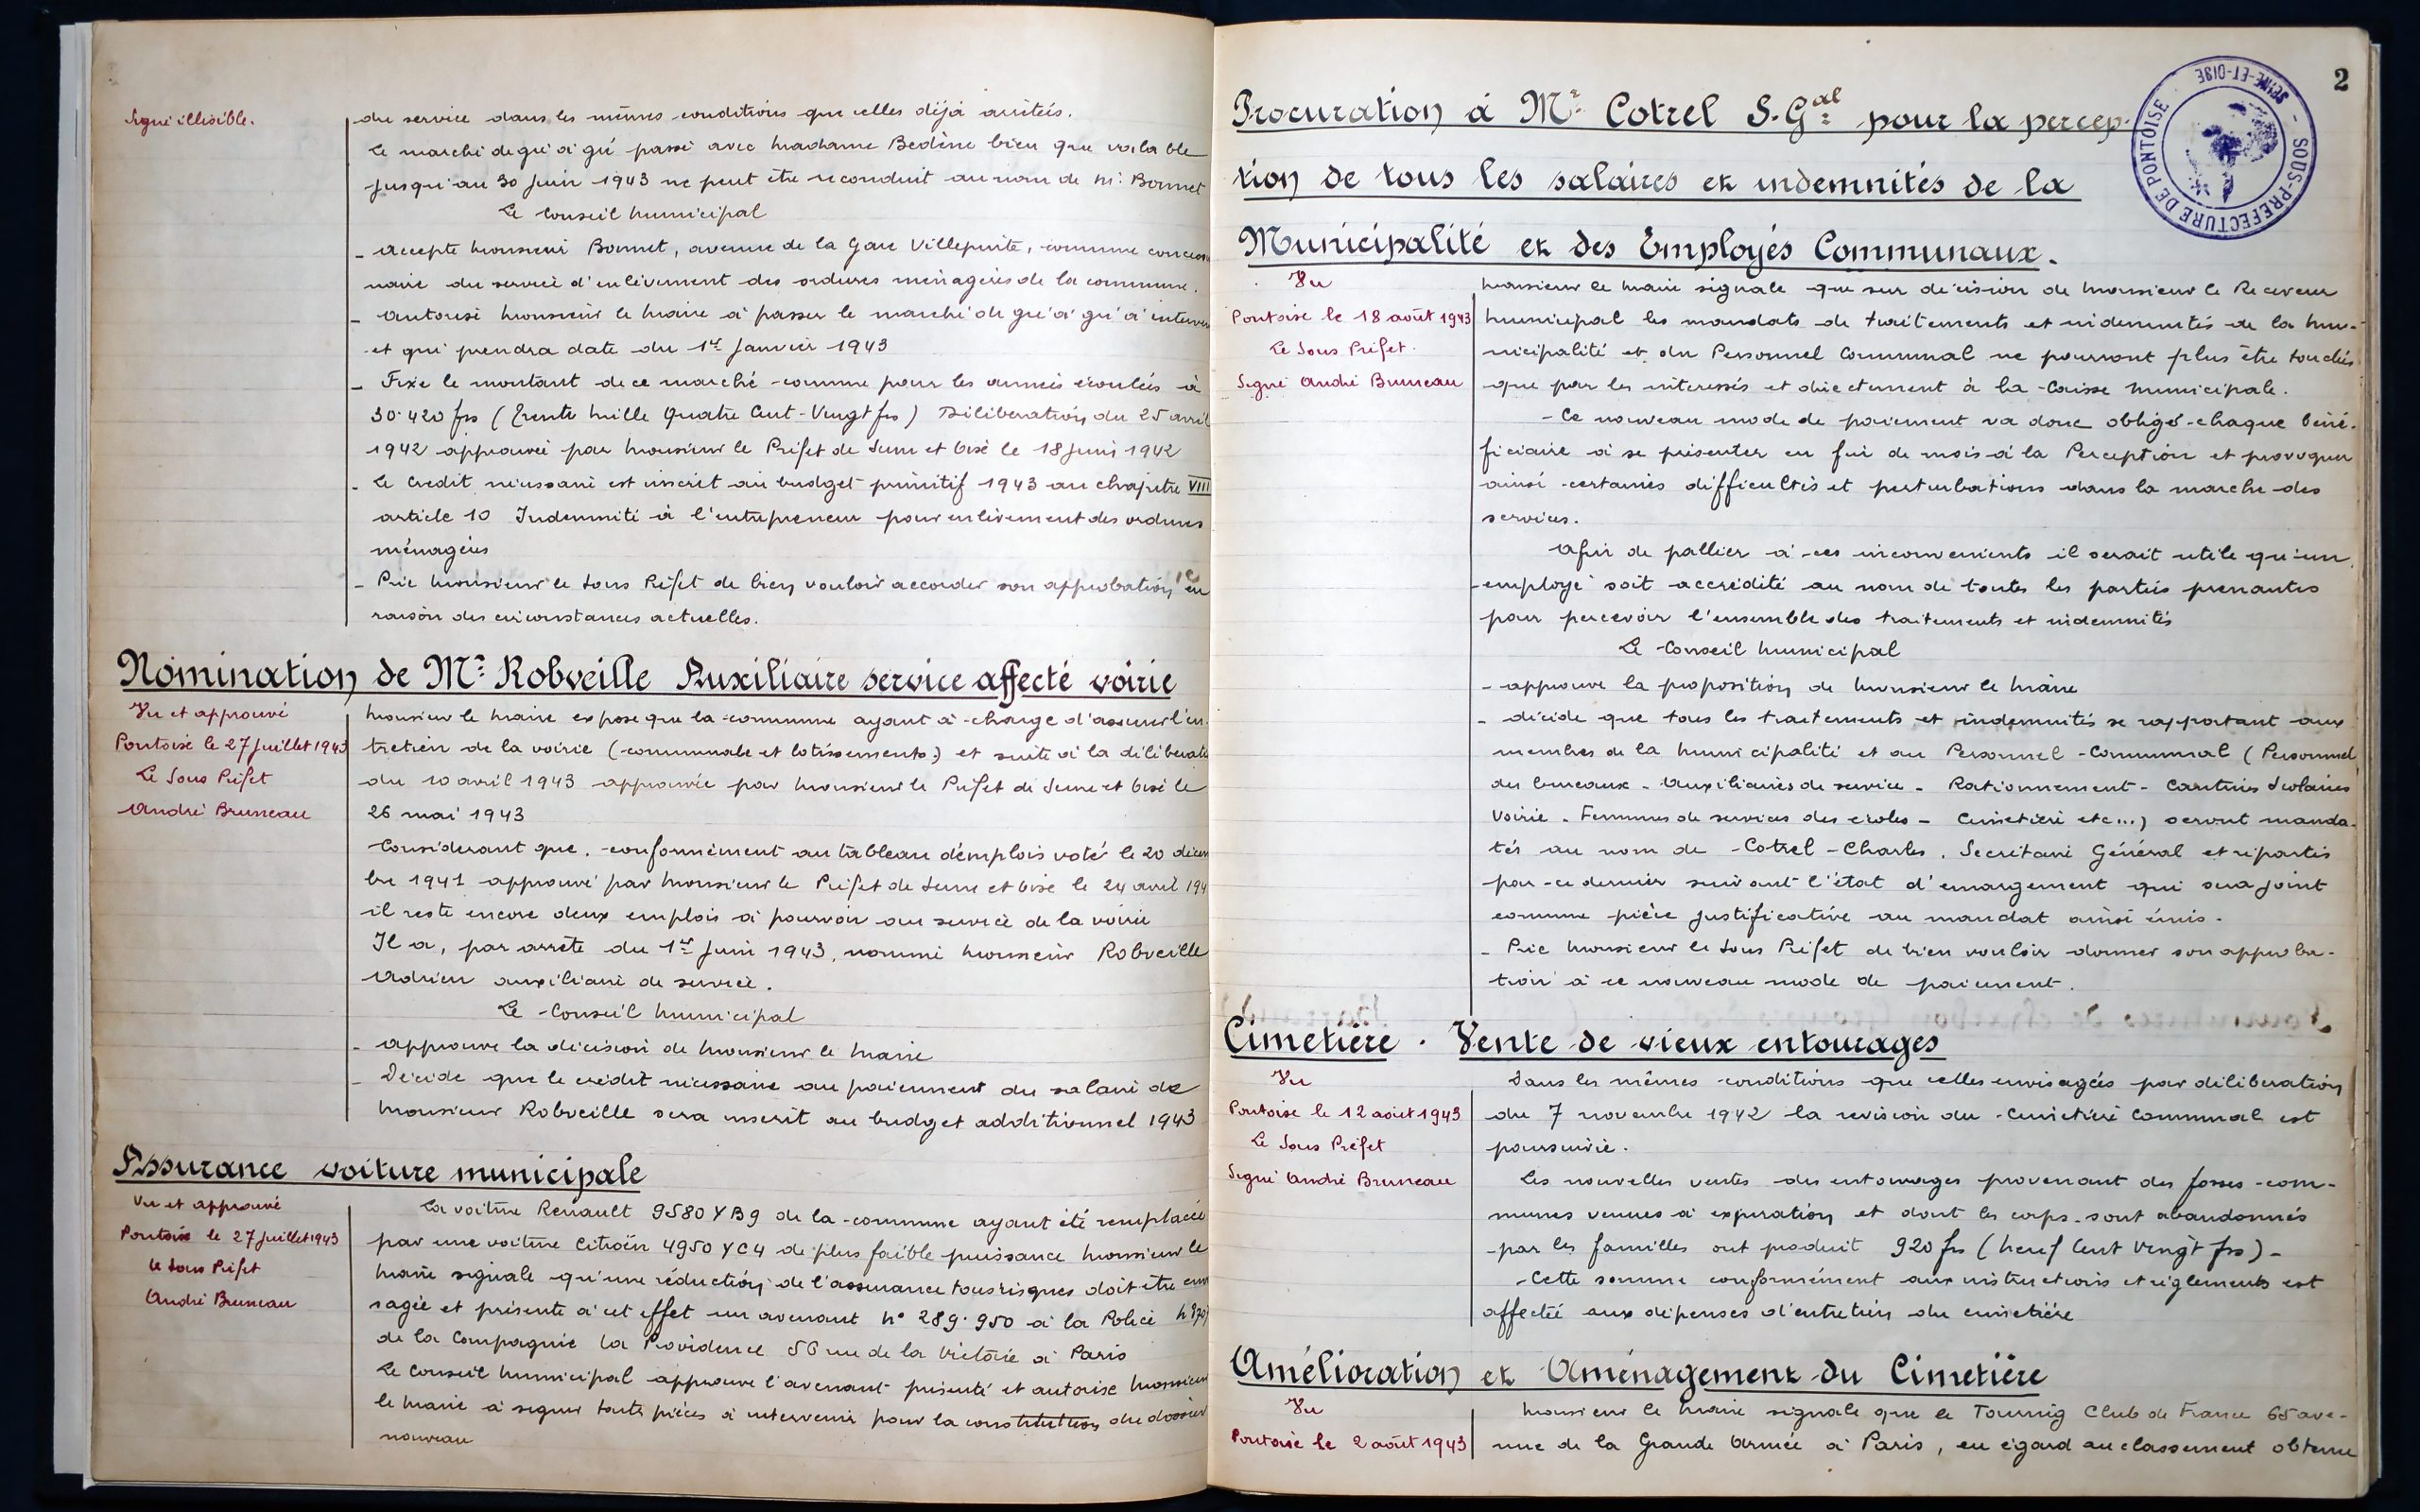 Signé illisible.
du service dans les mêmes conditions que celles déjà arrêtées.
Le marché de gré à gré passé avec Madame Bedène bien que valable
jusqu'au 30 Juin 1943 ne peut être reconduit au nom de Mr. Bonnet
Le Conseil Municipal
- Accepte Monsieur Bonnet, avenue de la Gare Villepinte, comme concession
naire du service d'enlèvement des ordures ménagères de la commune.
- Autorise Monsieur le Maire à passer le marché de gré à gré à interve
et qui prendra date du 1er Janvier 1943
- Fixe le montant de ce marché comme pour les années écoulées à
30.420 frs (Trente Mille Quatre Cent-Vingt frs) Délibération du 25 avril
1942 approuvée par Monsieur le Préfet de Seine et Oise le 18 Juin 1942
- Le Crédit nécessaire est inscrit au budget primitif 1943 au chapitre VIII
article 10 Indemnité à l'entrepreneur pour enlèvement des ordures
ménagères
- Prie Monsieur le Sous Préfet de bien vouloir accorder son approbation en
raison des circonstances actuelles.
Nomination de Mr. Robveille Auxiliaire service affecté voirie
Vu et approuvé
Pontoise le 27 Juillet 1943
Le Sous Préfet
André Bruneau
Monsieur le Maire expose que la commune ayant à charge d'assurer l'en
tretien de la voirie (communale et lotissements) et suite à la délibérati
du 10 avril 1943 approuvée par Monsieur le Préfet de Seine et Oise le
26 mai 1943
Considérant que, conformément au tableau d'emplois voté le 20 décem
bre 1941 approuvé par Monsieur le Préfet de Seine et Oise le 24 avril 194
il reste encore deux emplois à pourvoir au service de la voirie
Il a, par arrêté du 1er Juin 1943, nommé Monsieur Robveille
Adrien auxiliaire de service.
Le Conseil Municipal
- approuve la décision de Monsieur le Maire
- Décide que le crédit nécessaire au paiement du salaire de
Monsieur Robveille sera inscrit au budget additionnel 1943
Assurance voiture municipale
Vu et approuvé
Pontoise le 27 Juillet 1943
Le Sous Préfet
André Bruneau
La voiture Renault 9580 YB9 de la commune ayant été remplacée
par une voiture Citroën 4950 YC4 de plus faible puissance Monsieur le
Maire signale qu'une réduction de l'assurance tous risques doit être envi
sagée et présente à cet effet un avenant N° 289.950 à la Police
de la Compagnie La Providence 56 rue de la Victoire à Paris
Le Conseil Municipal approuve l'avenant présenté et autorise Monsieur
le Maire à signer toute pièces à intervenir pour la constitution du dossier
nouveau
2
SOUS-PREFECTURE DE PONTOISE - SEINE-ET-OISE
Procuration à Mr. Cotrel S. Gal pour la percep-
tion de tous les salaires et indemnités de la
Municipalité et des Employés Communaux.
Vu
Pontoise le 18 août 1943
Le Sous Préfet.
Signé André Bruneau
Monsieur le Maire signale que sur décision de Monsieur le Receveur
Municipal les mandats de traitements et indemnités de la Mu-
nicipalité et du Personnel Communal ne pourront plus être touchés
que par les intéressés et directement à la Caisse Municipale.
- Ce nouveau mode de paiement va donc obligé chaque béné-
ficiaire à se présenter en fin de mois à la Perception et provoquer
ainsi certaines difficultés et perturbations dans la marche des
services.
Afin de pallier à ces inconvenients il serait utile qu'un
employé soit accrédité au nom de toutes les parties prenantes
pour percevoir l'ensemble des traitements et indemnités
Le Conseil Municipal
- approuve la proposition de Monsieur le Maire
- décide que tous les traitements et indemnités se rapportant aux
membres de la Municipalité et au Personnel Communal (Personnel
des bureaux - Auxiliaires de service - Rationnement - Cantines Scolaires
Voirie - Femmes de services des écoles - Cimetière etc...) seront manda-
tés au nom de Cotrel Charles, Secrétaire Général et répartis
par ce dernier suivant l'état d'émargement qui sera joint
comme pièce justificative au mandat ainsi émis.
- Prie Monsieur le Sous Préfet de bien vouloir donner son approba-
tion à ce nouveau mode de paiement.
Cimetière . Vente de vieux entourages
Vu
Pontoise le 12 août 1943
Le Sous Préfet
Signé André Bruneau
Dans les mêmes conditions que celles envisagées par délibération
du 7 novembre 1942 la revision du Cimetière Communal est
poursuivie.
Les nouvelles ventes des entourages provenant des fosses com-
munes venues à expiration et dont les corps sont abandonnés
par les familles ont produit 920 frs (Neuf Cent Vingt frs) -
Cette somme conformément aux instructions et règlements est
affectée aux dépenses d'entretien du cimetière
Amélioration et Aménagement du Cimetière
Vu
Pontoise le 2 août 1943
Monsieur le Maire signale que le Touring Club de France 65 ave-
nue de la Grande Armée à Paris, eu égard au classement obtenu